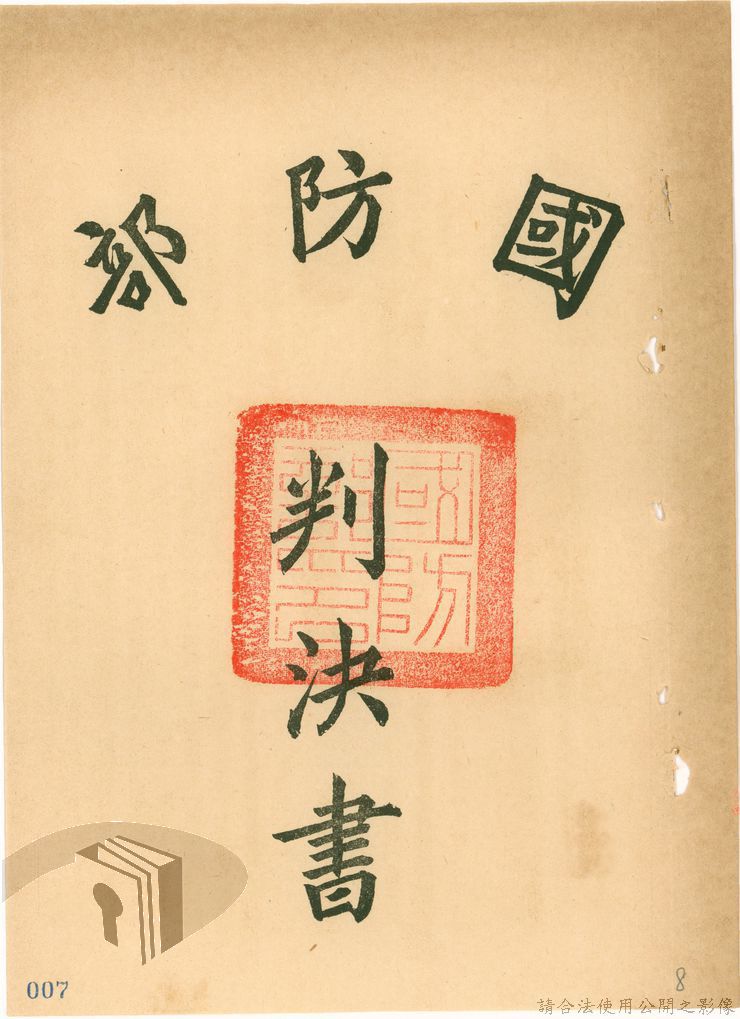 國防部
判決書
國防部印
007
8
請合法使用公開之影像